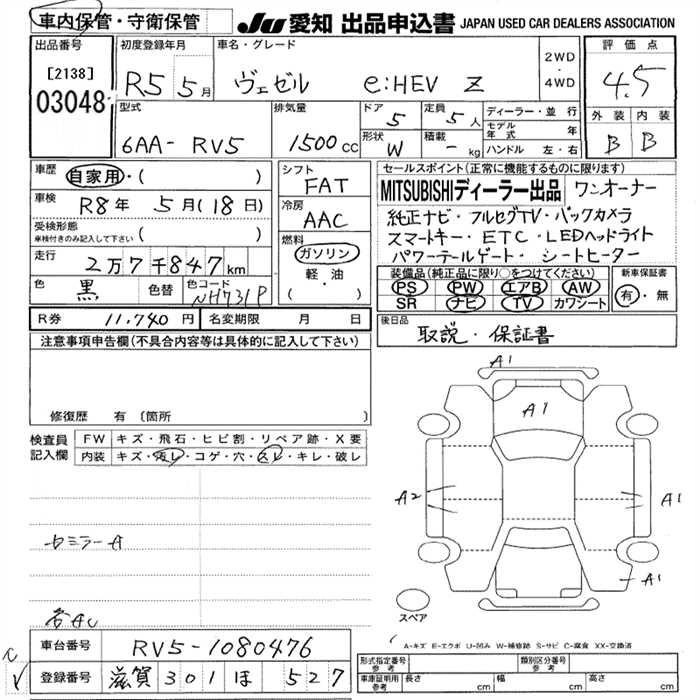 車内保管・守衛保管 JU 愛知 出品申込書 JAPAN USED CAR DEALERS ASSOCIATION
出品番号 初度登録年月 車名・グレード 評価点
[2138] R5 5月 ヴェゼル e:HEV Z 2WD・4WD 4.5
03048 型式 排気量 ドア 5 定員 5人 ディーラー・並行 外装 内装
6AA- RV5 1500cc 形状 W 積載 - kg モデル年式 年 B B
ハンドル 左・右
車歴 自家用・( ) シフト FAT セールスポイント(正常に機能するものに限ります)
車検 R8年 5月(18日) 冷房 AAC MITSUBISHIディーラー出品 ワンオーナー
受検形態 ( ) 純正ナビ・フルセグTV・バックカメラ
車検付きのみ記入して下さい 燃料 スマートキー・ETC・LEDヘッドライト
走行 2万7千847km ガソリン パワーテールゲート・シートヒーター
軽・油 装備品(純正品に限り○をつけてください) 新車保証書
色 黒 色替 色コード NH731P ( ) PS PW エアB AW 有・無
SR ナビ TV カワシート
R券 11,740円 名変期限 月 日 後日品
注意事項申告欄(不具合内容等は具体的に記入して下さい) 取説・保証書
修復歴 有 〔箇所 〕
検査員記入欄 FW キズ・飛石・ヒビ割・リペア跡・X要
内装 キズ・汚レ・コゲ・穴・スレ・キレ・破レ
A1
A1
A2 A1
A1
スペア
A-キズ E-エクボ U-凹み W-補修跡 S-サビ C-腐食 XX-交換済
車台番号 RV5-1080476
登録番号 滋賀 301 ほ 527
形式指定番号 参考 類別区分番号 参考
車庫証明用 参考 長さ cm 幅 cm 高さ cm